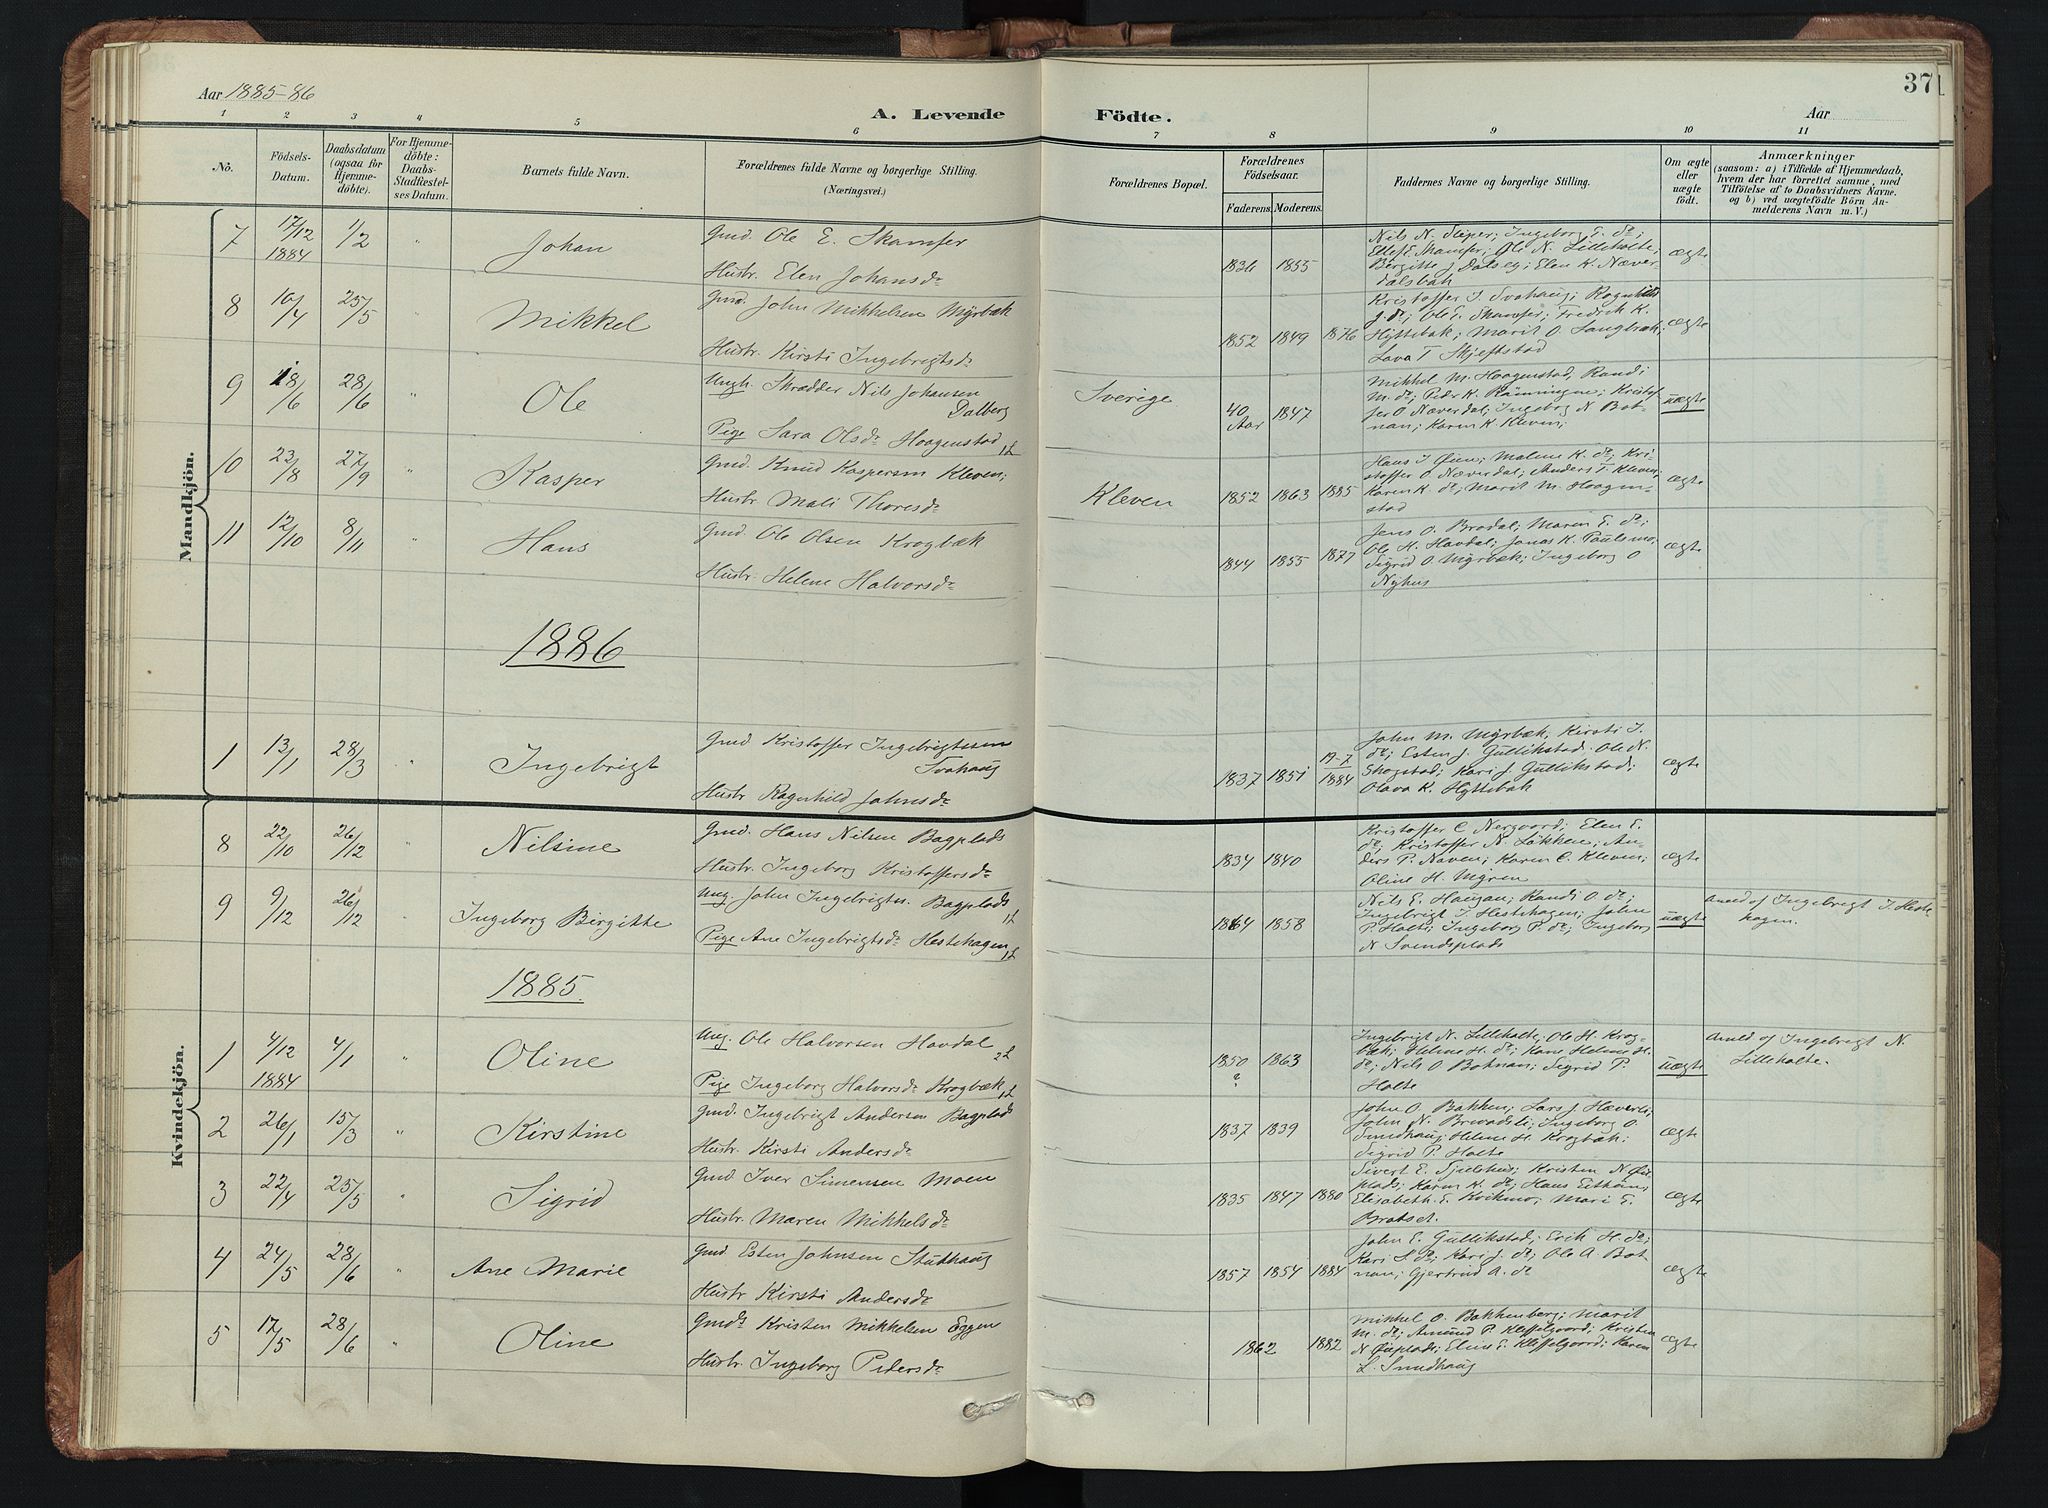 Aar 1885-86
A. Levende Födte.
Aar
37
1 2 3 4 5 6 7 8 9 10 11
No.
Födsels-Datum.
Daabsdatum (ogsaa for Hjemmedöbte).
For Hjemmedöbte: Daabs-Stadfæstelses Datum.
Barnets fulde Navn.
Forældrenes fulde Navne og borgerlige Stilling.
(Næringsvei.)
Forældrenes Bopæl.
Forældrenes Födselsaar.
Faderens. Moderens.
Faddernes Navne og borgerlige Stilling.
Om ægte eller uægte födt.
Anmærkninger
(saasom: a) i Tilfælde af Hjemmedaab,
hvem der har forrettet samme, med
Tilföielse af to Daabsvidners Navne.
og b) ved uægtefödte Börn An-
melderens Navn m. V.)
Mandkjön.
7 17/12 1884 1/2 " Johan Gmd. Ole E. Skamfer
Hustr. Elen Johansdr 1836 1855
Nils N. Sleper; Ingeborg E. dr;
Ellef E. Skamfer; Ole N. Lilleholte;
Birgitte J. Dalseg; Elen K. Næver-
dalsbak ægte
8 10/4 25/5 " Mikkel Gmd. John Mikkelsen Myrbæk
Hustr. Kirsti Ingebrigtsdr 1852 1849 1876
Kristoffer I. Svahaug; Ragnhild
J. dr; Ole E. Skamfer; Fredrik K.
Hyttebak; Marit O. Langbræk;
Lava T Skjeftstad ægte
9 18/6 28/6 " Ole Ungk. Skrædder Nils Johansen
Dalberg
Pige Sara Olsdr Haagenstad 1L
Sverige 40 Aar 1847
Mikkel M. Haagenstad, Randi
M. dr; Peder K. Rönningne; Kristof-
fer O. Næverdal; Ingeborg N Bot-
nan; Karen K. Kleven; uægte
10 23/8 27/9 " Kasper Gmd. Knud Kaspersen Kleven;
Hustr. Mali Thoresdr
Kleven 1852 1863 1885
Hans J. Öien; Malene K. dr; Kri-
stoffer O. Næverdal; Anders T. Kleven;
Karen K. dr; Marit M. Haagen-
stad ægte
11 12/10 8/11 " Hans Gmd. Ole Olsen Krogbæk
Hustr. Helene Halvorsdr 1844 1855 1877
Jens O. Bradal; Maren E. dr;
Ole H. Havdal; Jonas K. Paulsmo,
Sigrid O. Myrbæk; Ingeborg O
Nyhus ægte
1886
1 13/1 28/3 " Ingebrigt Gmd Kristoffer Ingebrigtssen
Svahaug
Hustr Ragnhild Johnsdr 1837 1851 19-7 1884
John M. Myrbæk, Kirsti I.
dr; Esten J. Gullikstad. Ole N.
Skogstad; Kari J. Gullikstad;
Olava K. Hyttebak ægte
Kvindekjön.
8 22/10 26/12 " Nilsine Gmd. Hans Nilsen Bagplads
Hustr. Ingeborg Kristoffersdr 1834 1840
Kristoffer C Nergaard; Elen E.
dr; Kristoffer N. Løkken; An-
ders P. Naven; Karen C. Kleven;
Oline H. Myren ægte
9 9/12 26/12 " Ingeborg Birgitte Ung. John Ingebrigtn. Bagplads 1L
Pige Ane Ingebrigtsdr Hestehagen 1L 1864 1858
Nils E. Haugan; Randi O. dr;
Ingebrigt I. Hestehagen; John
P. Holte; Ingeborg P. dr; Ingeborg
N Svendsplads uægte
Anmeld af Ingebrigt I. Heste
hagen.
1885.
1 4/12 1884 4/1 " Oline Ung. Ole Halvorsen Havdal 2L
Pige Ingeborg Halvorsdr Krogbæk 1L 1850 ? 1863
Ingebrigt N. Lilleholte; Ole H. Krog-
bæk; Helene H. dr; Kane Helene H.
dr; Nils O Botnan; Sigrid P.
Holte uægte
Anmeld af Ingebrigt N.
Lilleholte.
2 26/1 15/3 " Kirstine Gmd. Ingebrigt Andersen Bagplads
Hustr. Kirsti Andersdr 1837 1839
John O. Bakken; Lars J. Hæverli;
John N. Brevadsli; Ingeborg O.
Sundhaug; Helene H. Krogbæk;
Sigrid P. Holte ægte
3 22/4 25/5 " Sigrid Gmd Iver Simensen Moen
Hustr. Maren Mikkelsdr 1835 1847 1880
Sivert E. Sjelshus; Kristen N. Öi-
plads; Karen K. dr; Hans Eithun;
Elisabeth E. Kvikmo; Mari E.
Bratset. ægte
4 24/5 28/6 " Ane Marie Gmd. Esten Johnsen Stubhaug
Hustr Kirsti Andersdr 1857 1854 1884
John E. Gullikstad; Erik H. dr;
Kari S. dr; Kari J. dr; Ole A. Bot-
nan; Gjertrud A. dr ægte
5 17/5 28/6 " Oline Gmdr Kristen Mikkelsen Eggen
Hustr. Ingeborg Pedersdr 1862 1882
Mikkel O. Bakkenberg; Marit
M. dr; Amund P. Kleffelgaard; Kristen
N Öiplads; Eline E. Kleffelgaard; Karen
L. Sundhaug ægte